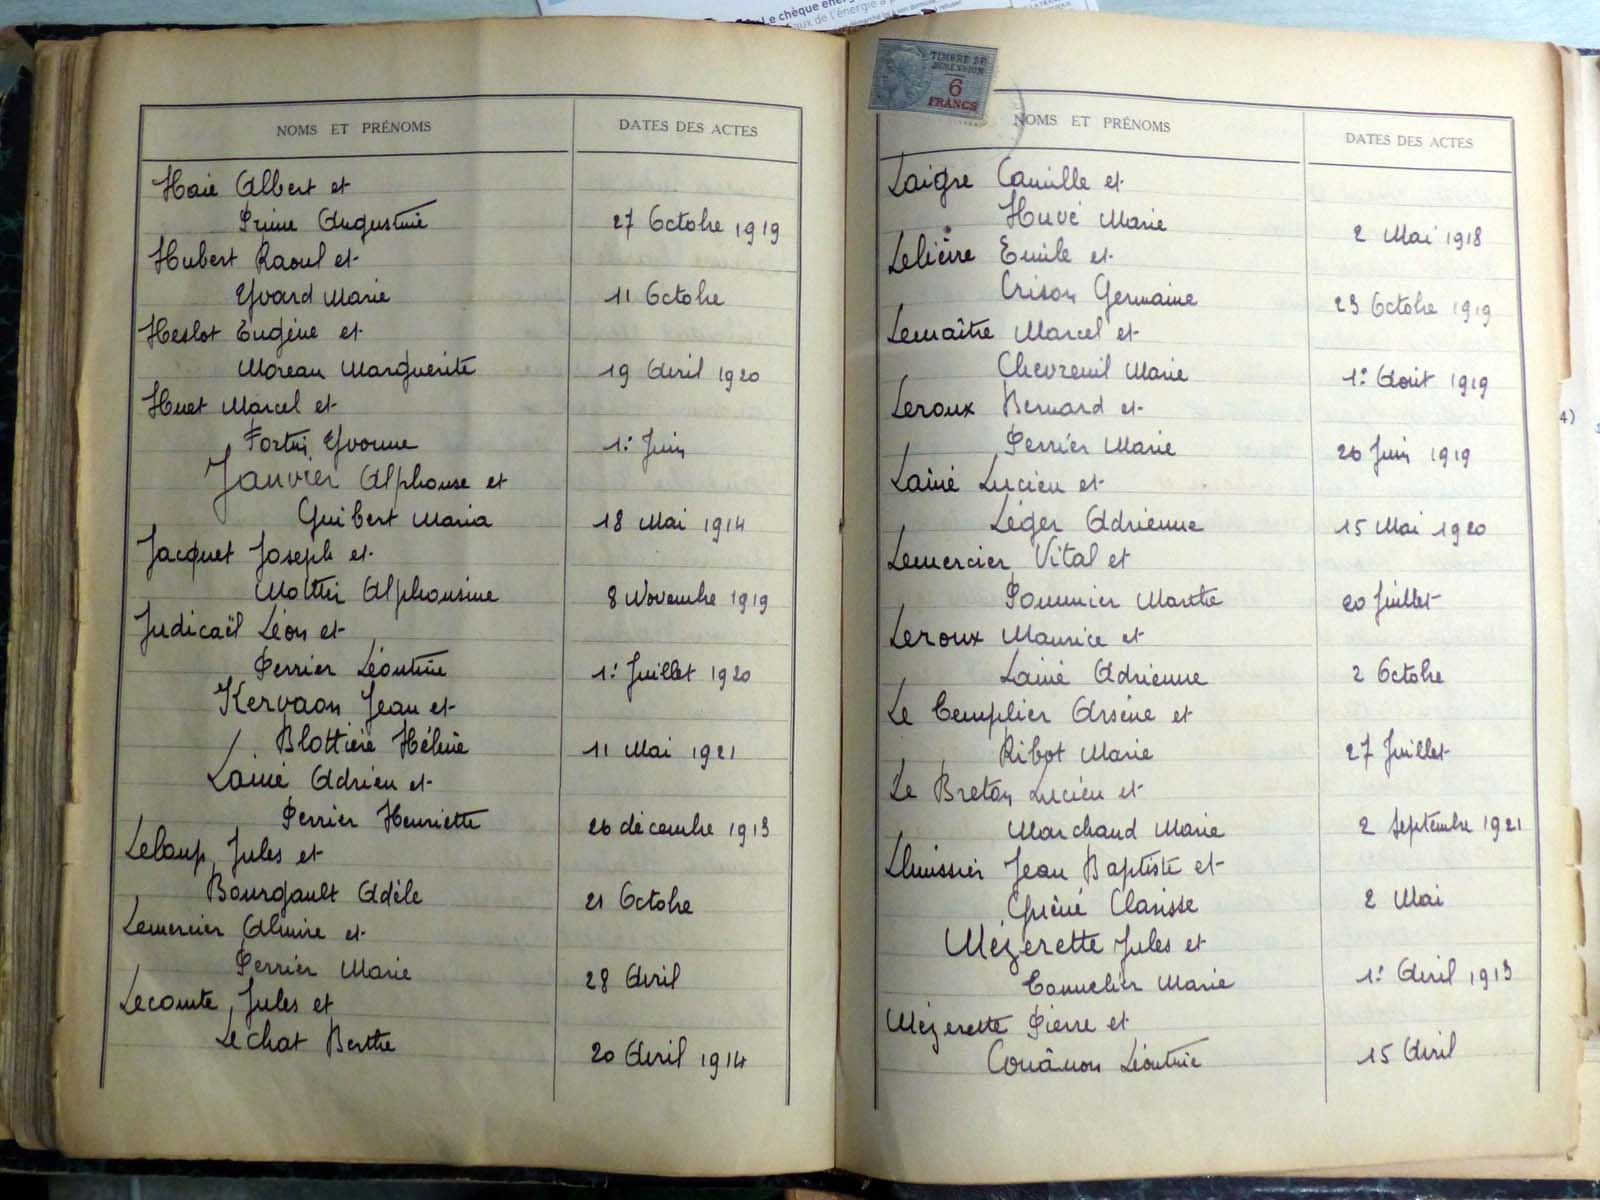 Le chèque éner
aux de l'énergie à p
NOMS ET PRÉNOMS DATES DES ACTES
Haie Albert et
Prime Augustine 27 Octobre 1919
Hubert Raoul et
Yvard Marie 11 Octobre
Heslot Eugène et
Moreau Marguerite 19 Avril 1920
Huet Marcel et
Fortin Yvonne 1er Juin
Janvier Alphonse et
Guibert Maria 18 Mai 1914
Jacquet Joseph et
Mottin Alphonsine 8 Novembre 1919
Judicaël Léon et
Perrier Léontine 1er Juillet 1920
Kervaon Jean et
Blottière Hélène 11 Mai 1921
Lainé Adrien et
Perrier Henriette 26 décembre 1913
Leloup Jules et
Bourgault Adèle 21 Octobre
Lemercier Almire et
Perrier Marie 28 Avril
Lecomte Jules et
Lechat Berthe 20 Avril 1914
TIMBRE DE
DIMENSION
6
FRANCS
NOMS ET PRÉNOMS DATES DES ACTES
Laigre Camille et
Huvé Marie 2 Mai 1918
Lelièvre Emile et
Crison Germaine 23 Octobre 1919
Lemaître Marcel et
Chevreuil Marie 1er Août 1919
Leroux Bernard et
Perrier Marie 26 Juin 1919
Lainé Lucien et
Léger Adrienne 15 Mai 1920
Lemercier Vital et
Pommier Marthe 20 Juillet
Leroux Maurice et
Lainé Adrienne 2 Octobre
Le Templier Arsène et
Ribot Marie 27 Juillet
Le Breton Lucien et
Marchand Marie 2 Septembre 1921
Lhuissier Jean Baptiste et
Guéné Clarisse 2 Mai
Mézerette Jules et
Tonnelier Marie 1er Avril 1913
Mézerette Pierre et
Couânon Léontine 15 Avril
4)